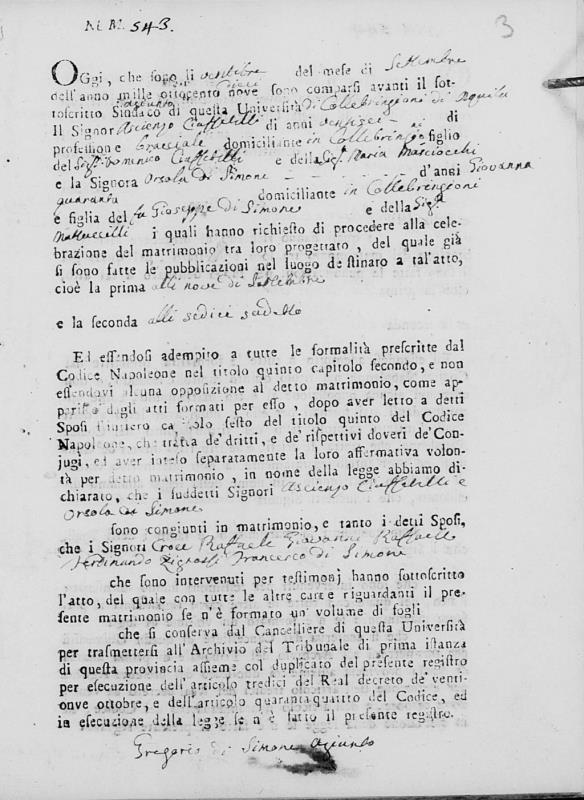 N. M. 543.
3
OGgi, che sono li ventitre del mese di Settembre
dell'anno mille ottocento nove dieci sono comparsi avanti il sot-
toscritto Sindaco aggiunto di questa Università di Collebrincioni di Aquila
Il Signor Ascenzo Ciaffetelli di anni ventisei di
professione Bracciale domiciliante in Collebringioni figlio
del Sig. Domenico Ciaffetelli e della Sig.ª Maria Masciocchi
e la Signora Orsola di Simone d'anni
quaranta domiciliante in Collebringioni
e figlia del fu Gioseppe di Simone e della Sig.ª Giovanna
Mattuccilli i quali hanno richiesto di procedere alla cele-
brazione del matrimonio tra loro progettato, del quale già
si sono fatte le pubblicazioni nel luogo destinaro a tal'atto,
cioè la prima alli nove di Settembre
e la seconda alli sedici sudetto
Ed essendosi adempito a tutte le formalità prescritte dal
Codice Napoleone nel titolo quinto capitolo secondo, e non
essendovi alcuna opposizione al detto matrimonio, come ap-
parisce dagli atti formati per esso, dopo aver letto a detti
Sposi l'intiero capitolo sesto del titolo quinto del Codice
Napoleone, che tratta de' dritti, e de' rispettivi doveri de' Con-
jugi, ed aver inteso separatamente la loro affermativa volon-
tà per detto matrimonio, in nome della legge abbiamo di-
chiarato, che i suddetti Signori Ascenzo Ciaffetelli e
Orsola di Simone
sono congiunti in matrimonio, e tanto i detti Sposi,
che i Signori Croce Raffaele Giovanni Raffaele
Ferdinando Francesco di Simone
che sono intervenuti per testimonj hanno sottoscritto
l'atto, del quale con tutte le altre carte riguardanti il pre-
sente matrimonio se n'è formato un volume di fogli
che si conserva dal Cancelliere di questa Università
per trasmettersi all'Archivio del Tribunale di prima istanza
di questa provincia assieme col duplicato del presente registro
per esecuzione dell'articolo tredici del Real decreto de' venti-
onve ottobre, e dell'articolo quarantaquattro del Codice, ed
in esecuzione della legge se n'è fatto il presente registro.
Gregorio di Simone Agiunto